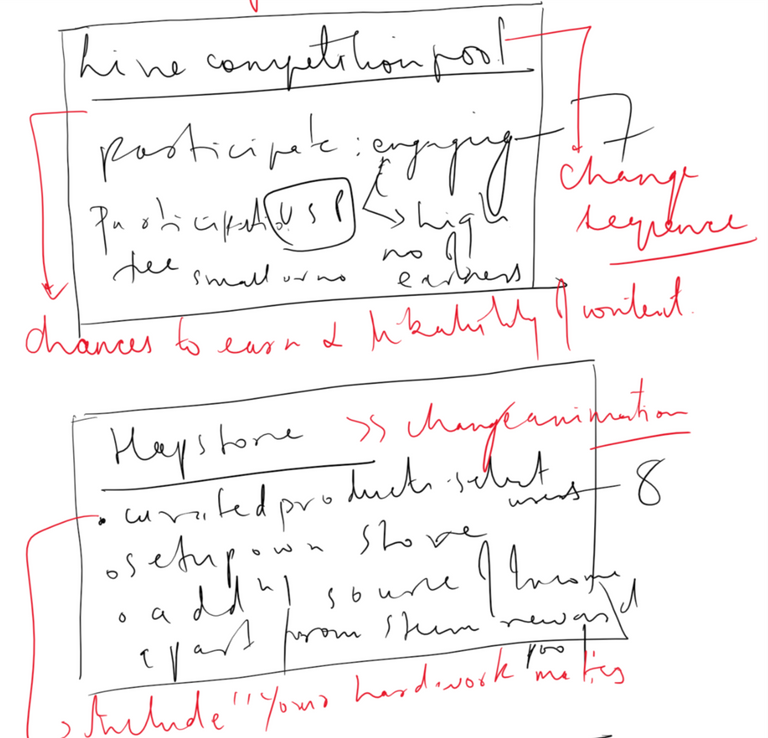 Live competition pool
participate : engaging 7
change
sequence
Participation USP high
fee small or no no of earners
chances to earn & likability of content.
Hapstore >> change animation
• curated products select users 8
• setup own store
• addnl source of Income
apart from stem reward pool
> Include "Your hardwork matters